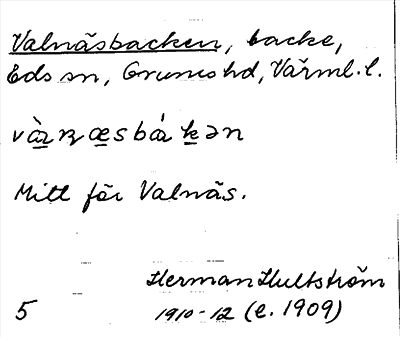 Valnäsbacken, backe,
Eds sn, Grums hd, Värml. l.
và̱ꞃæ̱sbáḵən
Mitt för Valnäs.
Herman Hultström
5 1910-12 (e. 1909)